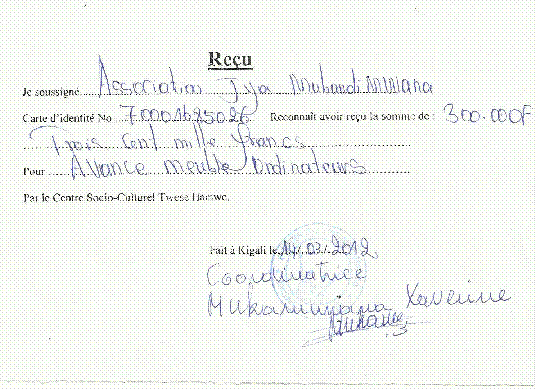 Reçu
Je soussigné Association Jya Mubandi Mwana
Carte d'identité No 70001625026 Reconnait avoir reçu la somme de : 300.000F
Trois Cent mille francs
Pour Avance meuble Ordinateurs
Par le Centre Socio-Culturel Twese Hamwe.
Fait à Kigali le 14/.03/.2012
Coordinatrice
Xaverine